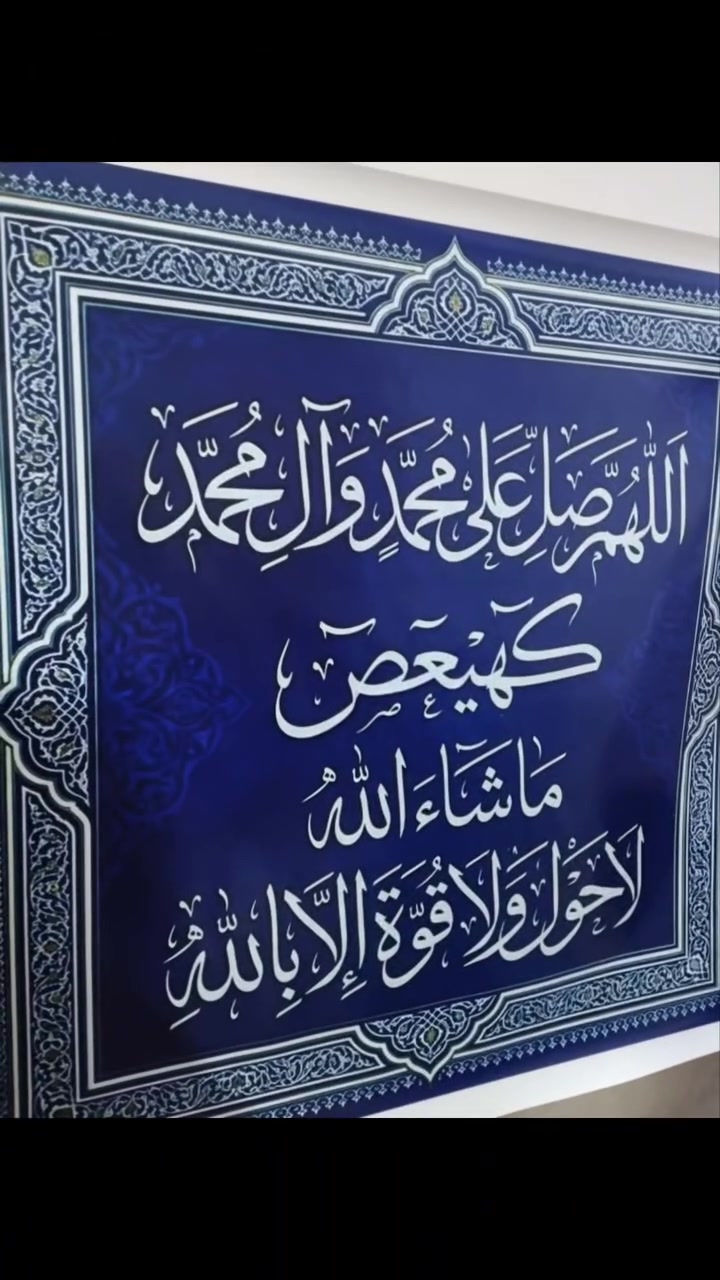 اَللّٰهُمَّ صَلِّ عَلٰی مُحَمَّدٍ وَآلِ مُحَمَّد
كٓهٰيٰعٓصٓ
مَاشَآءَ اللّٰهُ
لَاحَوْلَ وَلَا قُوَّةَ إِلَّا بِاللّٰهِ